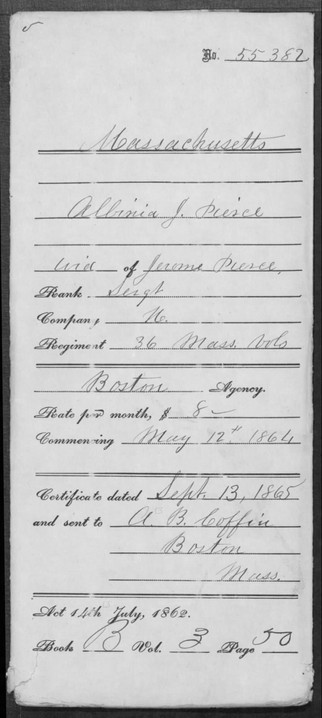 No. 55 382
Massachusetts
Albinia J. Pierce
wid of Jerome Pierce,
Rank Sergt
Company H.
Regiment 36 Mass. Vols
Boston Agency.
Rate per month, $ 8–
Commencing May 12th 1864
Certificate dated Sept. 13, 1865
and sent to A. B. Coffin
Boston
Mass.
Act 14th July, 1862.
Book B Vol. 3 Page 50